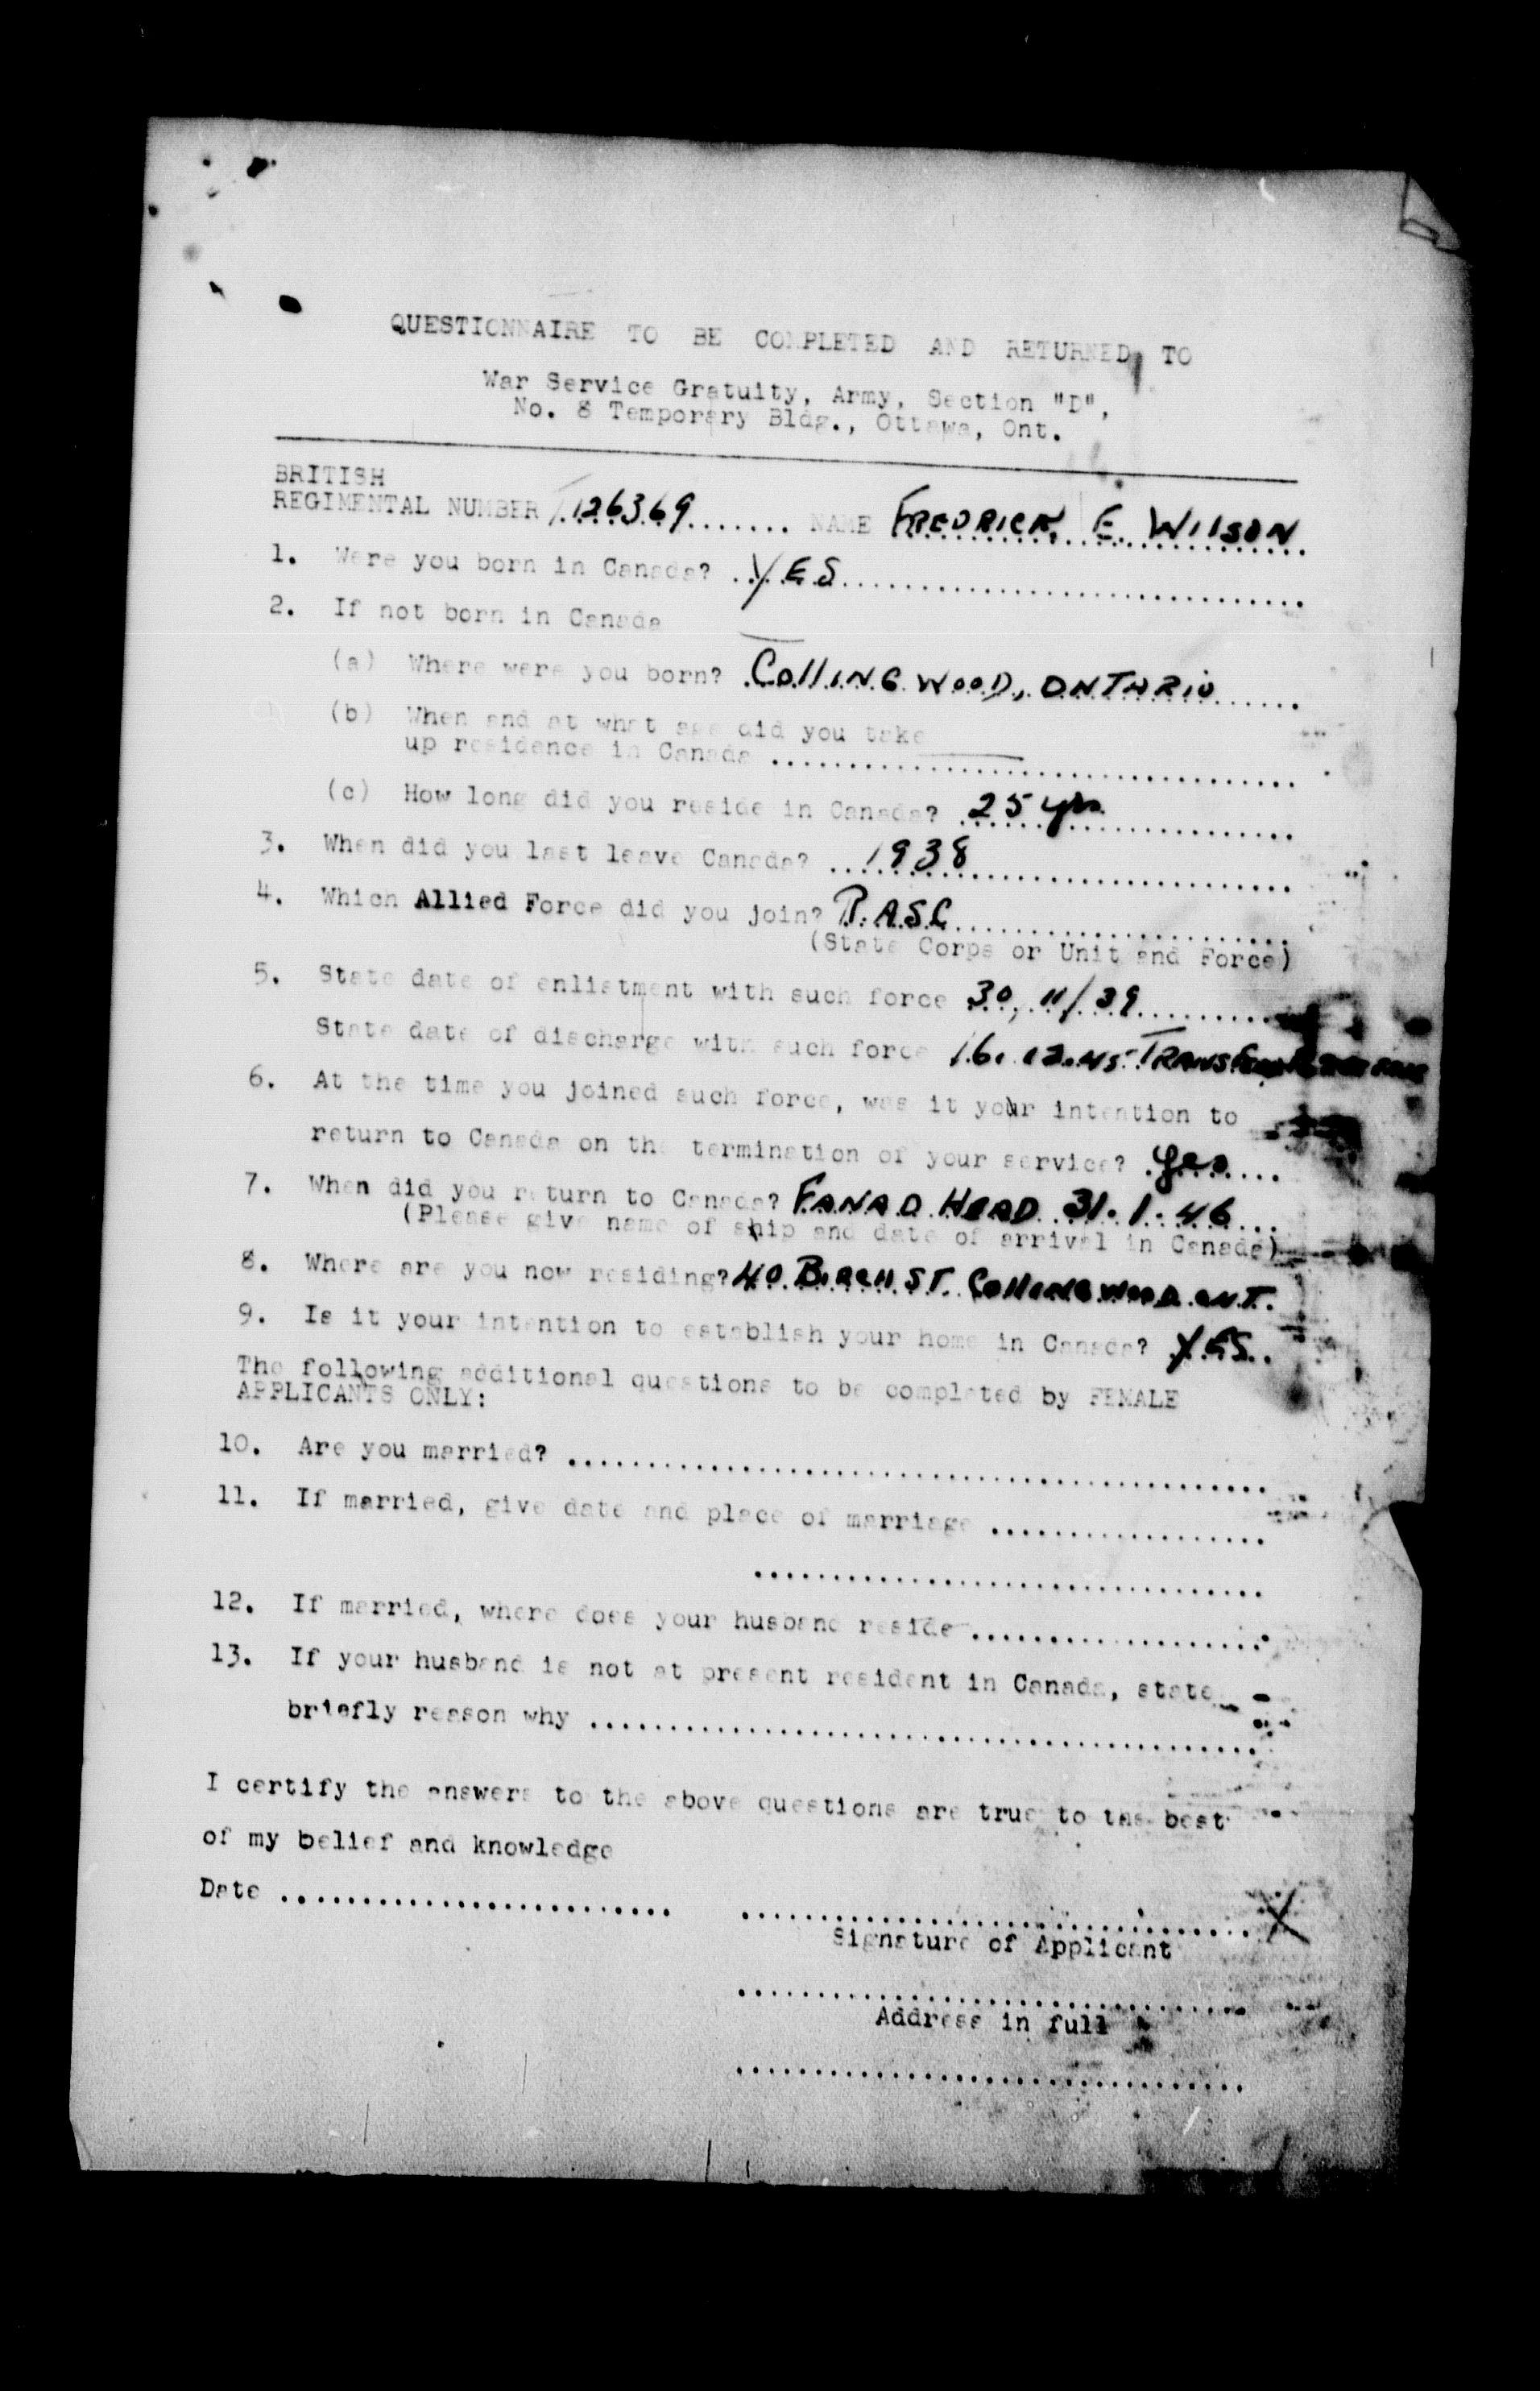 QUESTIONNAIRE TO BE COMPLETED AND RETURNED TO
War Service Gratuity, Army, Section "D",
No. 8 Temporary Bldg., Ottawa, Ont.
BRITISH
REGIMENTAL NUMBER T/126369 NAME FREDRICK E. WILSON
1. Were you born in Canada? YES
2. If not born in Canada
(a) Where were you born? COLLINGWOOD, ONTARIO
(b) When and at what age did you take
up residence in Canada
(c) How long did you reside in Canada? 25 yrs
3. When did you last leave Canada? 1938
4. Which Allied Force did you join? R.A.S.C
(State Corps or Unit and Force)
5. State date of enlistment with such force 30/11/39
State date of discharge with such force 16.12.45
6. At the time you joined such force, was it your intention to
return to Canada on the termination of your service? yes
7. When did you return to Canada? FANAD HEAD 31.1.46
(Please give name of ship and date of arrival in Canada)
8. Where are you now residing? 40 BIRCH ST. COLLINGWOOD ONT.
9. Is it your intention to establish your home in Canada? YES
The following additional questions to be completed by FEMALE
APPLICANTS ONLY:
10. Are you married?
11. If married, give date and place of marriage
12. If married, where does your husband reside
13. If your husband is not at present resident in Canada, state
briefly reason why
I certify the answers to the above questions are true to the best
of my belief and knowledge
Date
X
Signature of Applicant
Address in full